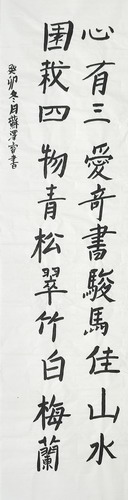 心有三愛奇書駿馬佳山水
園栽四物青松翠竹白梅蘭
癸卯冬月蔣澤富書